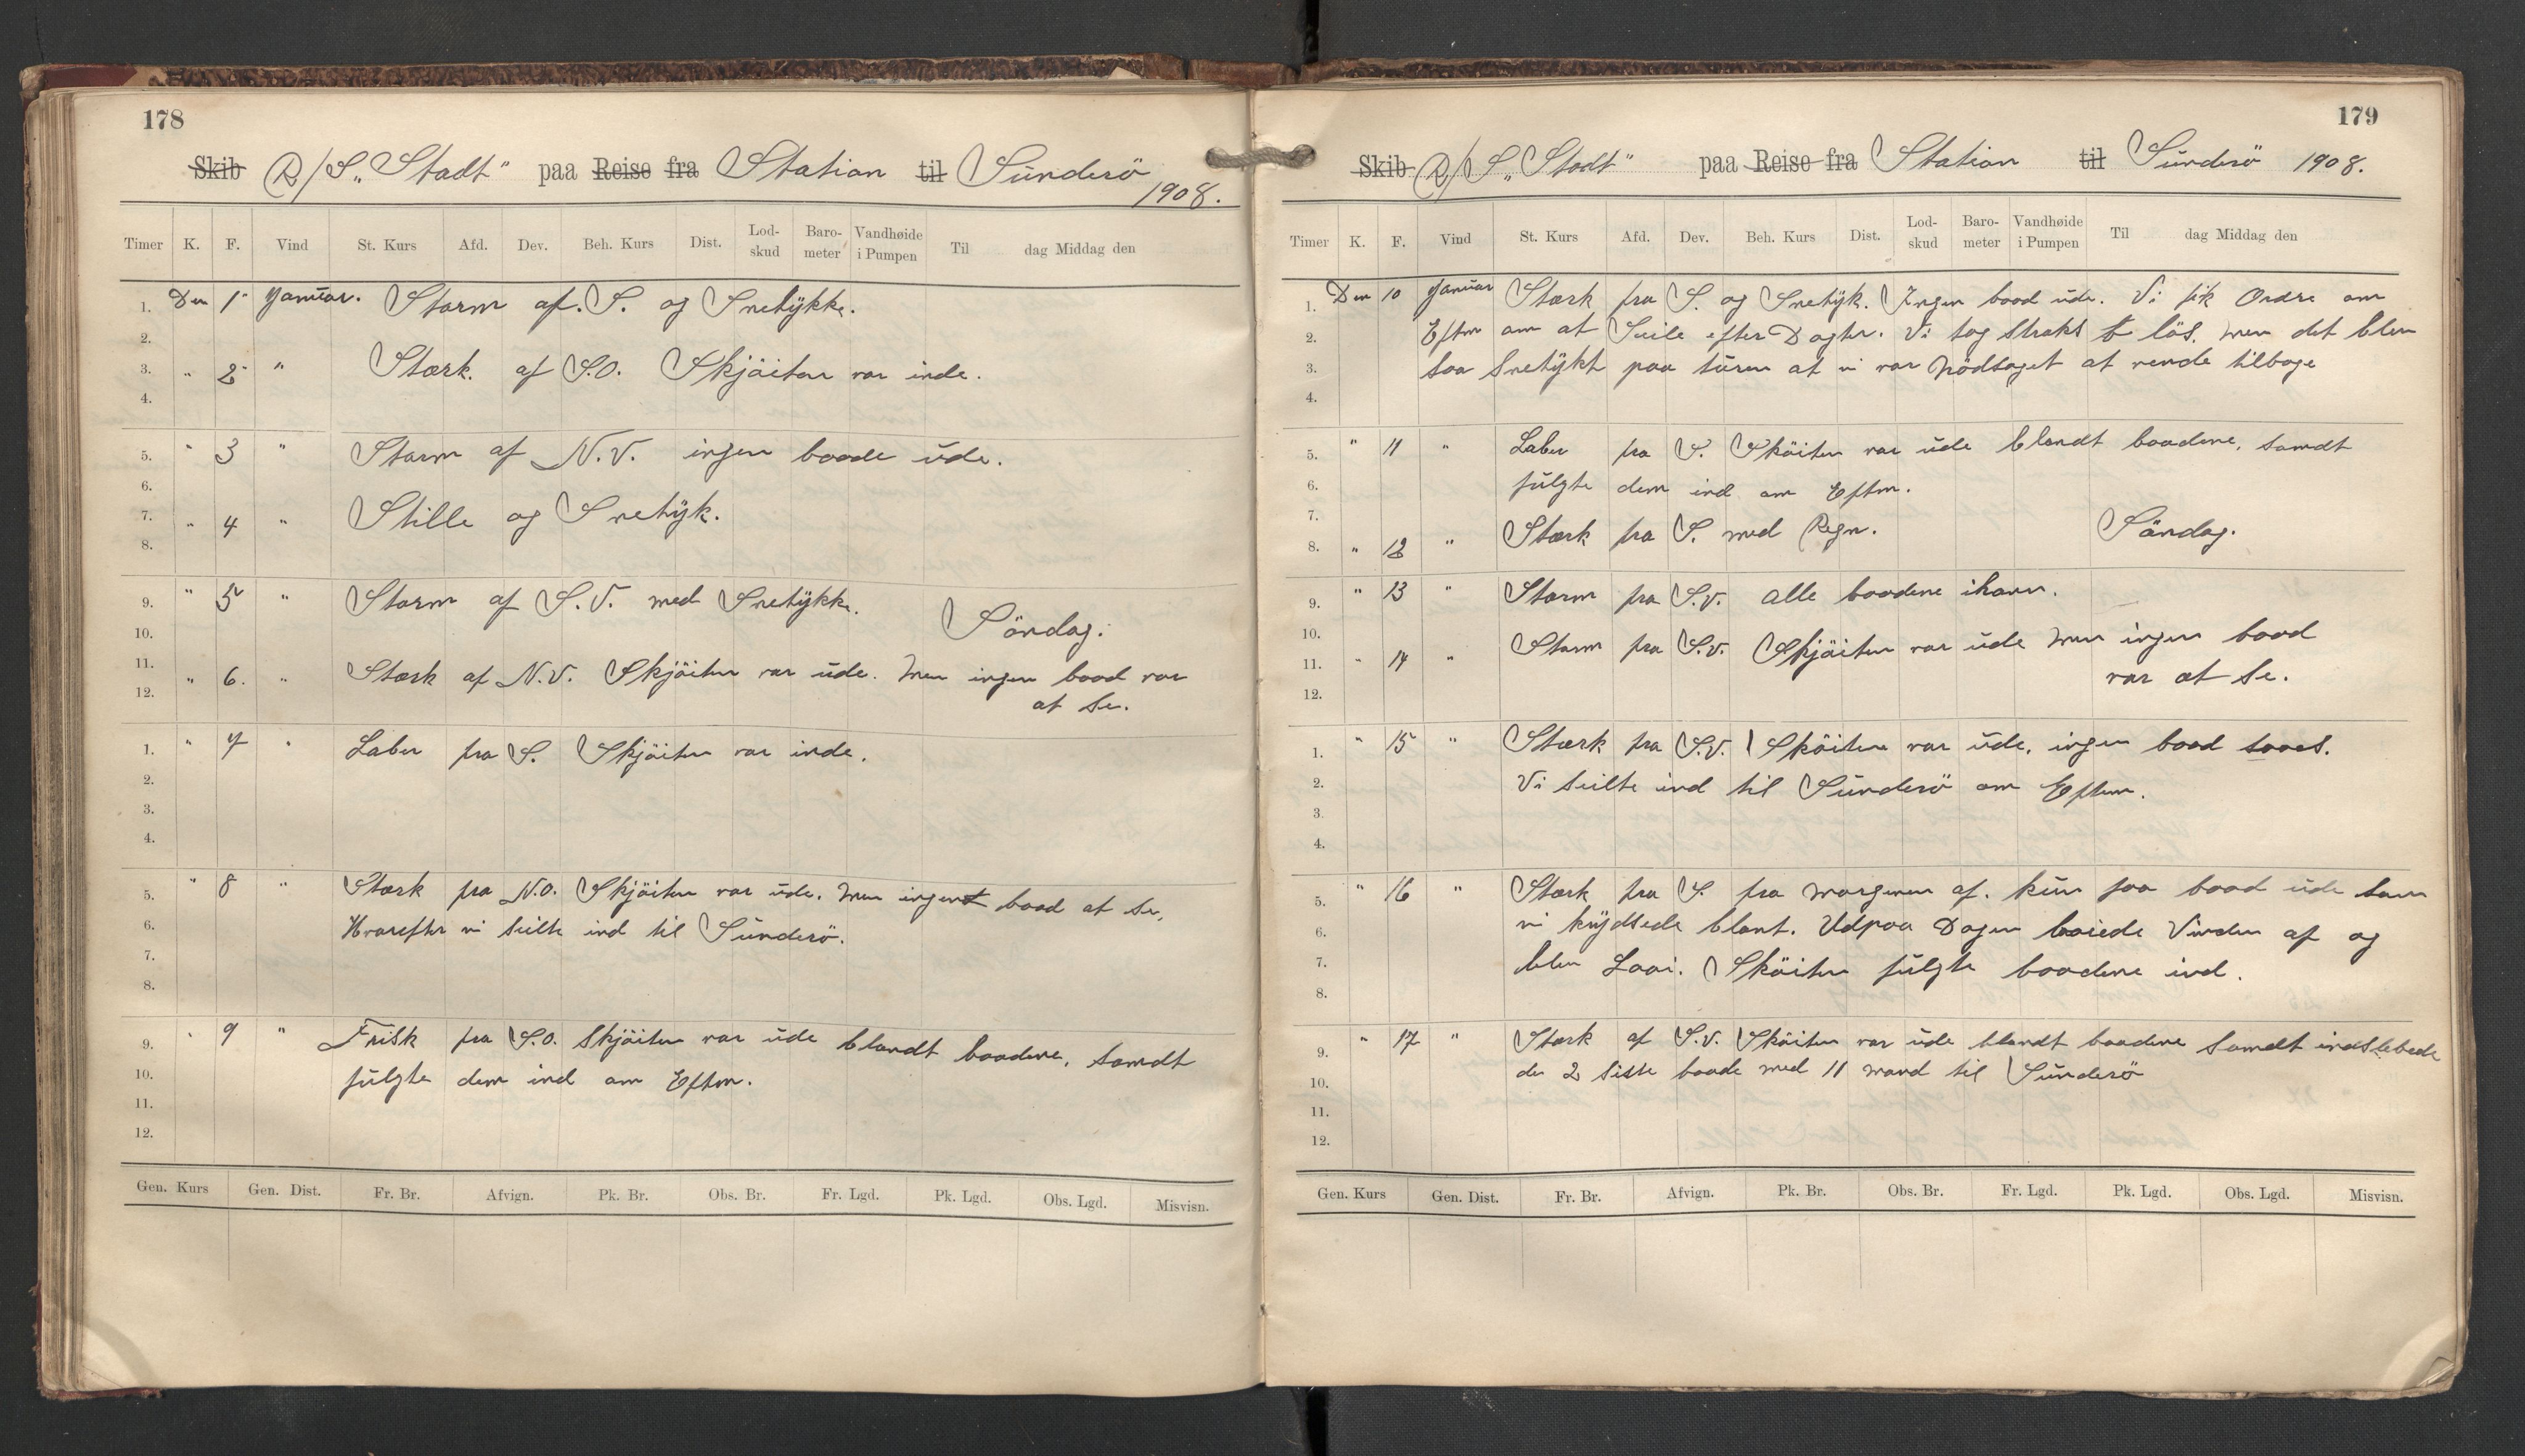 178
Skib R/S „Stadt" paa Reise fra Station til Sünderö
1908.
Timer K. F. Vind St. Kurs Afd. Dev. Beh. Kurs Dist. Lod-skud Baro-meter Vandhøide i Pumpen Til dag Middag den
1. Den 1 Januar. Storm af. S. og Snetÿkke.
2.
3. " 2 " Stærk. af S.O. Skjöiten var inde.
4.
5. " 3 " Storm af N.V. ingen baade üde.
6.
7. " 4 " Stille og Snetÿk.
8.
9. " 5 " Storm af S.V. med Snetÿkke.
10. Söndag.
11. " 6. " Stærk af N.V. Skjöiten var üde. Men ingen baad var
12. at Se.
1. " 7 " Laber fra S. Skjöiten var inde.
2.
3.
4.
5. " 8 " Stærk fra N.O. Skjöiten var üde. Men ingent baad at Se,
6. Hvorefter vi Seilte ind til Sünderö.
7.
8.
9. " 9 " Frisk fra S.O. Skjöiten var üde blandt baadene, Samdt
10. fülgte dem ind om Eftm.
11.
12.
Gen. Kurs Gen. Dist. Fr. Br. Afvign. Pk. Br. Obs. Br. Fr. Lgd. Pk. Lgd. Obs. Lgd. Misvisn.
179
Skib R/S „Stadt" paa Reise fra Station til Sünderö 1908.
Timer K. F. Vind St. Kurs Afd. Dev. Beh. Kurs Dist. Lod-skud Baro-meter Vandhøide i Pumpen Til dag Middag den
1. Den 10 Januar Stærk fra S. og Snetÿk. Ingen baad üde. Vi fik Ordre om
2. Eftm om at Seile efter Dogter. Vi tog straks lös. Men det blev
3. saa Snetÿkt paa türen at vi var Nödsaget at vende tilbage
4.
5. " 11 " Laber fra S. Sköiten var üde blandt baadene, Samdt
6. fülgte dem ind om Eftm.
7.
8. " 12 " Stærk fra S. med Regn. Söndag.
9. " 13 " Storm fra S.V. alle baadene ihavn.
10.
11. " 14 " Storm fra S.V. Skjöiten var üde Men ingen baad
12. var at Se.
1. " 15 " Stærk fra S.V. Sköiten var üde, ingen baad saaes.
2. Vi Seilte ind til Sünderö om Eftm.
3.
4.
5. " 16 " Stærk fra S. fra Morgenen af. kün faa baad üde som
6. vi krÿdsede blant. Udpaa Dagen løiede Vinden af og
7. blev Laai. Sköiten fülgte baadene ind.
8.
9. " 17 " Stærk af S.V. Sköiten var üde blandt baadene Samdt indslebede
10. de 2 siste baade med 11 mand til Sünderö
11.
12.
Gen. Kurs Gen. Dist. Fr. Br. Afvign. Pk. Br. Obs. Br. Fr. Lgd. Pk. Lgd. Obs. Lgd. Misvisn.